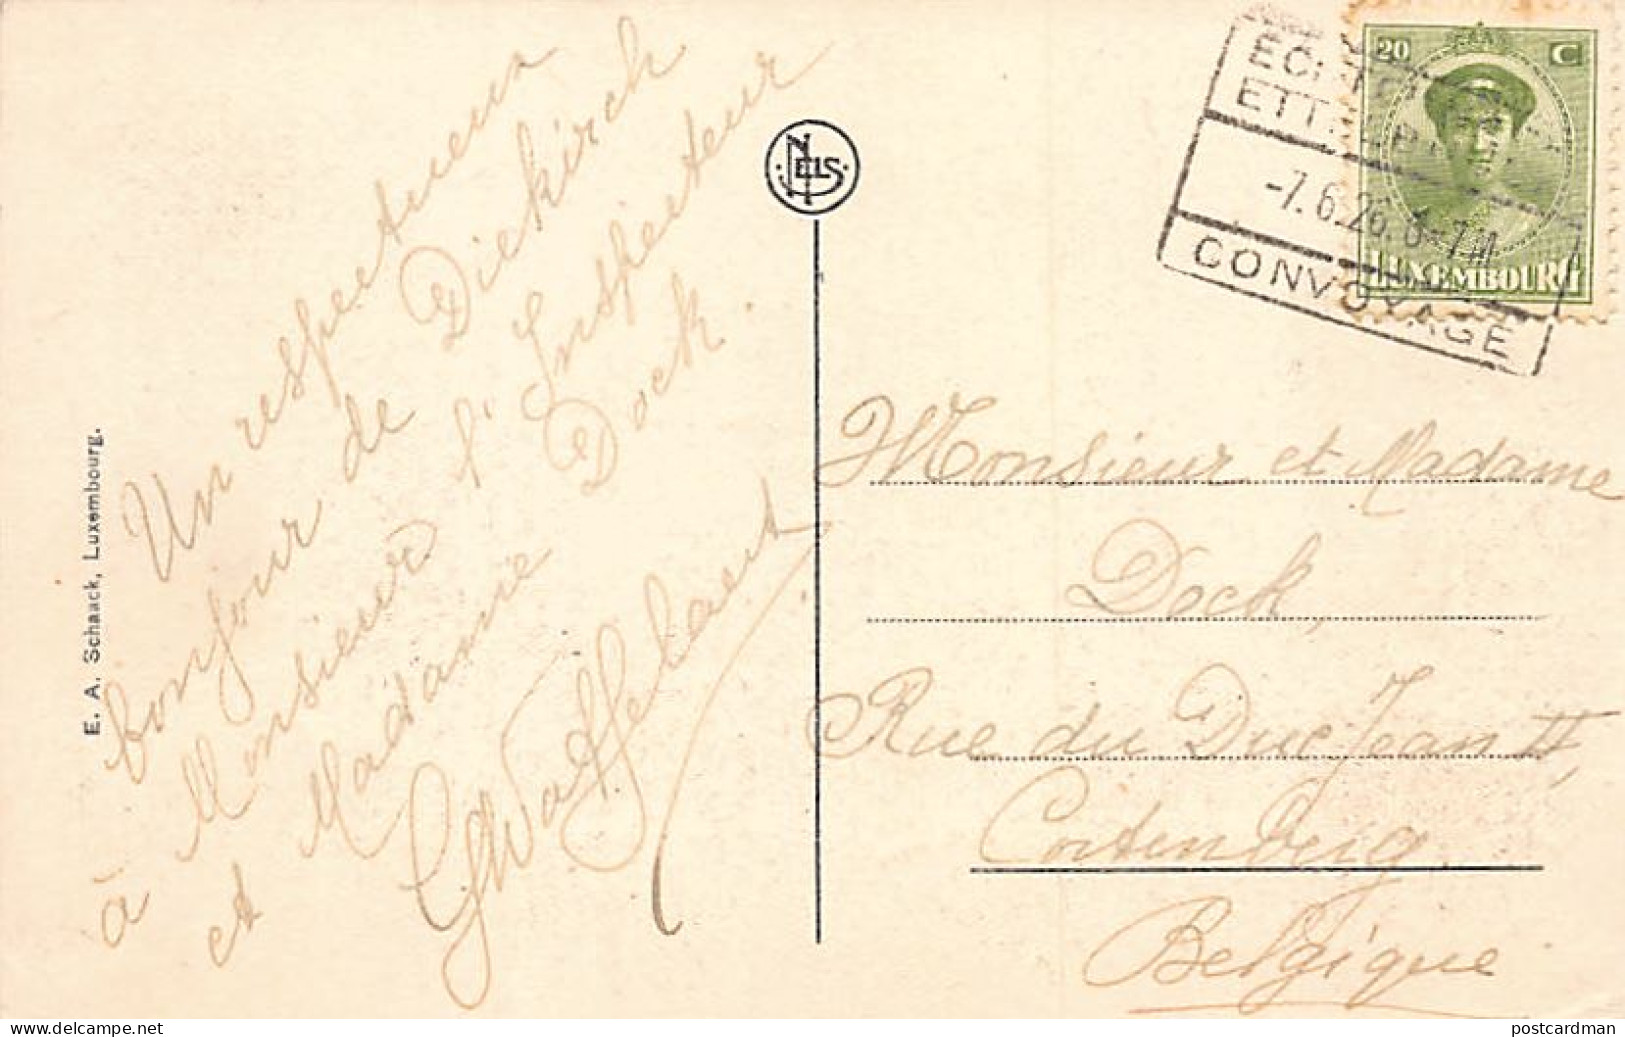 Un respectueux
bonjour de Diekirch
à Monsieur l'Inspecteur
et Madame Dock.
E. A. Schaack, Luxembourg.
NELS
20 C
LUXEMBOURG
-7.6.26.
CONVOYAGE
Monsieur et Madame
Dock,
Rue du Duc Jean II,
Cortenberg.
Belgique
www.delcampe.net
postcardman